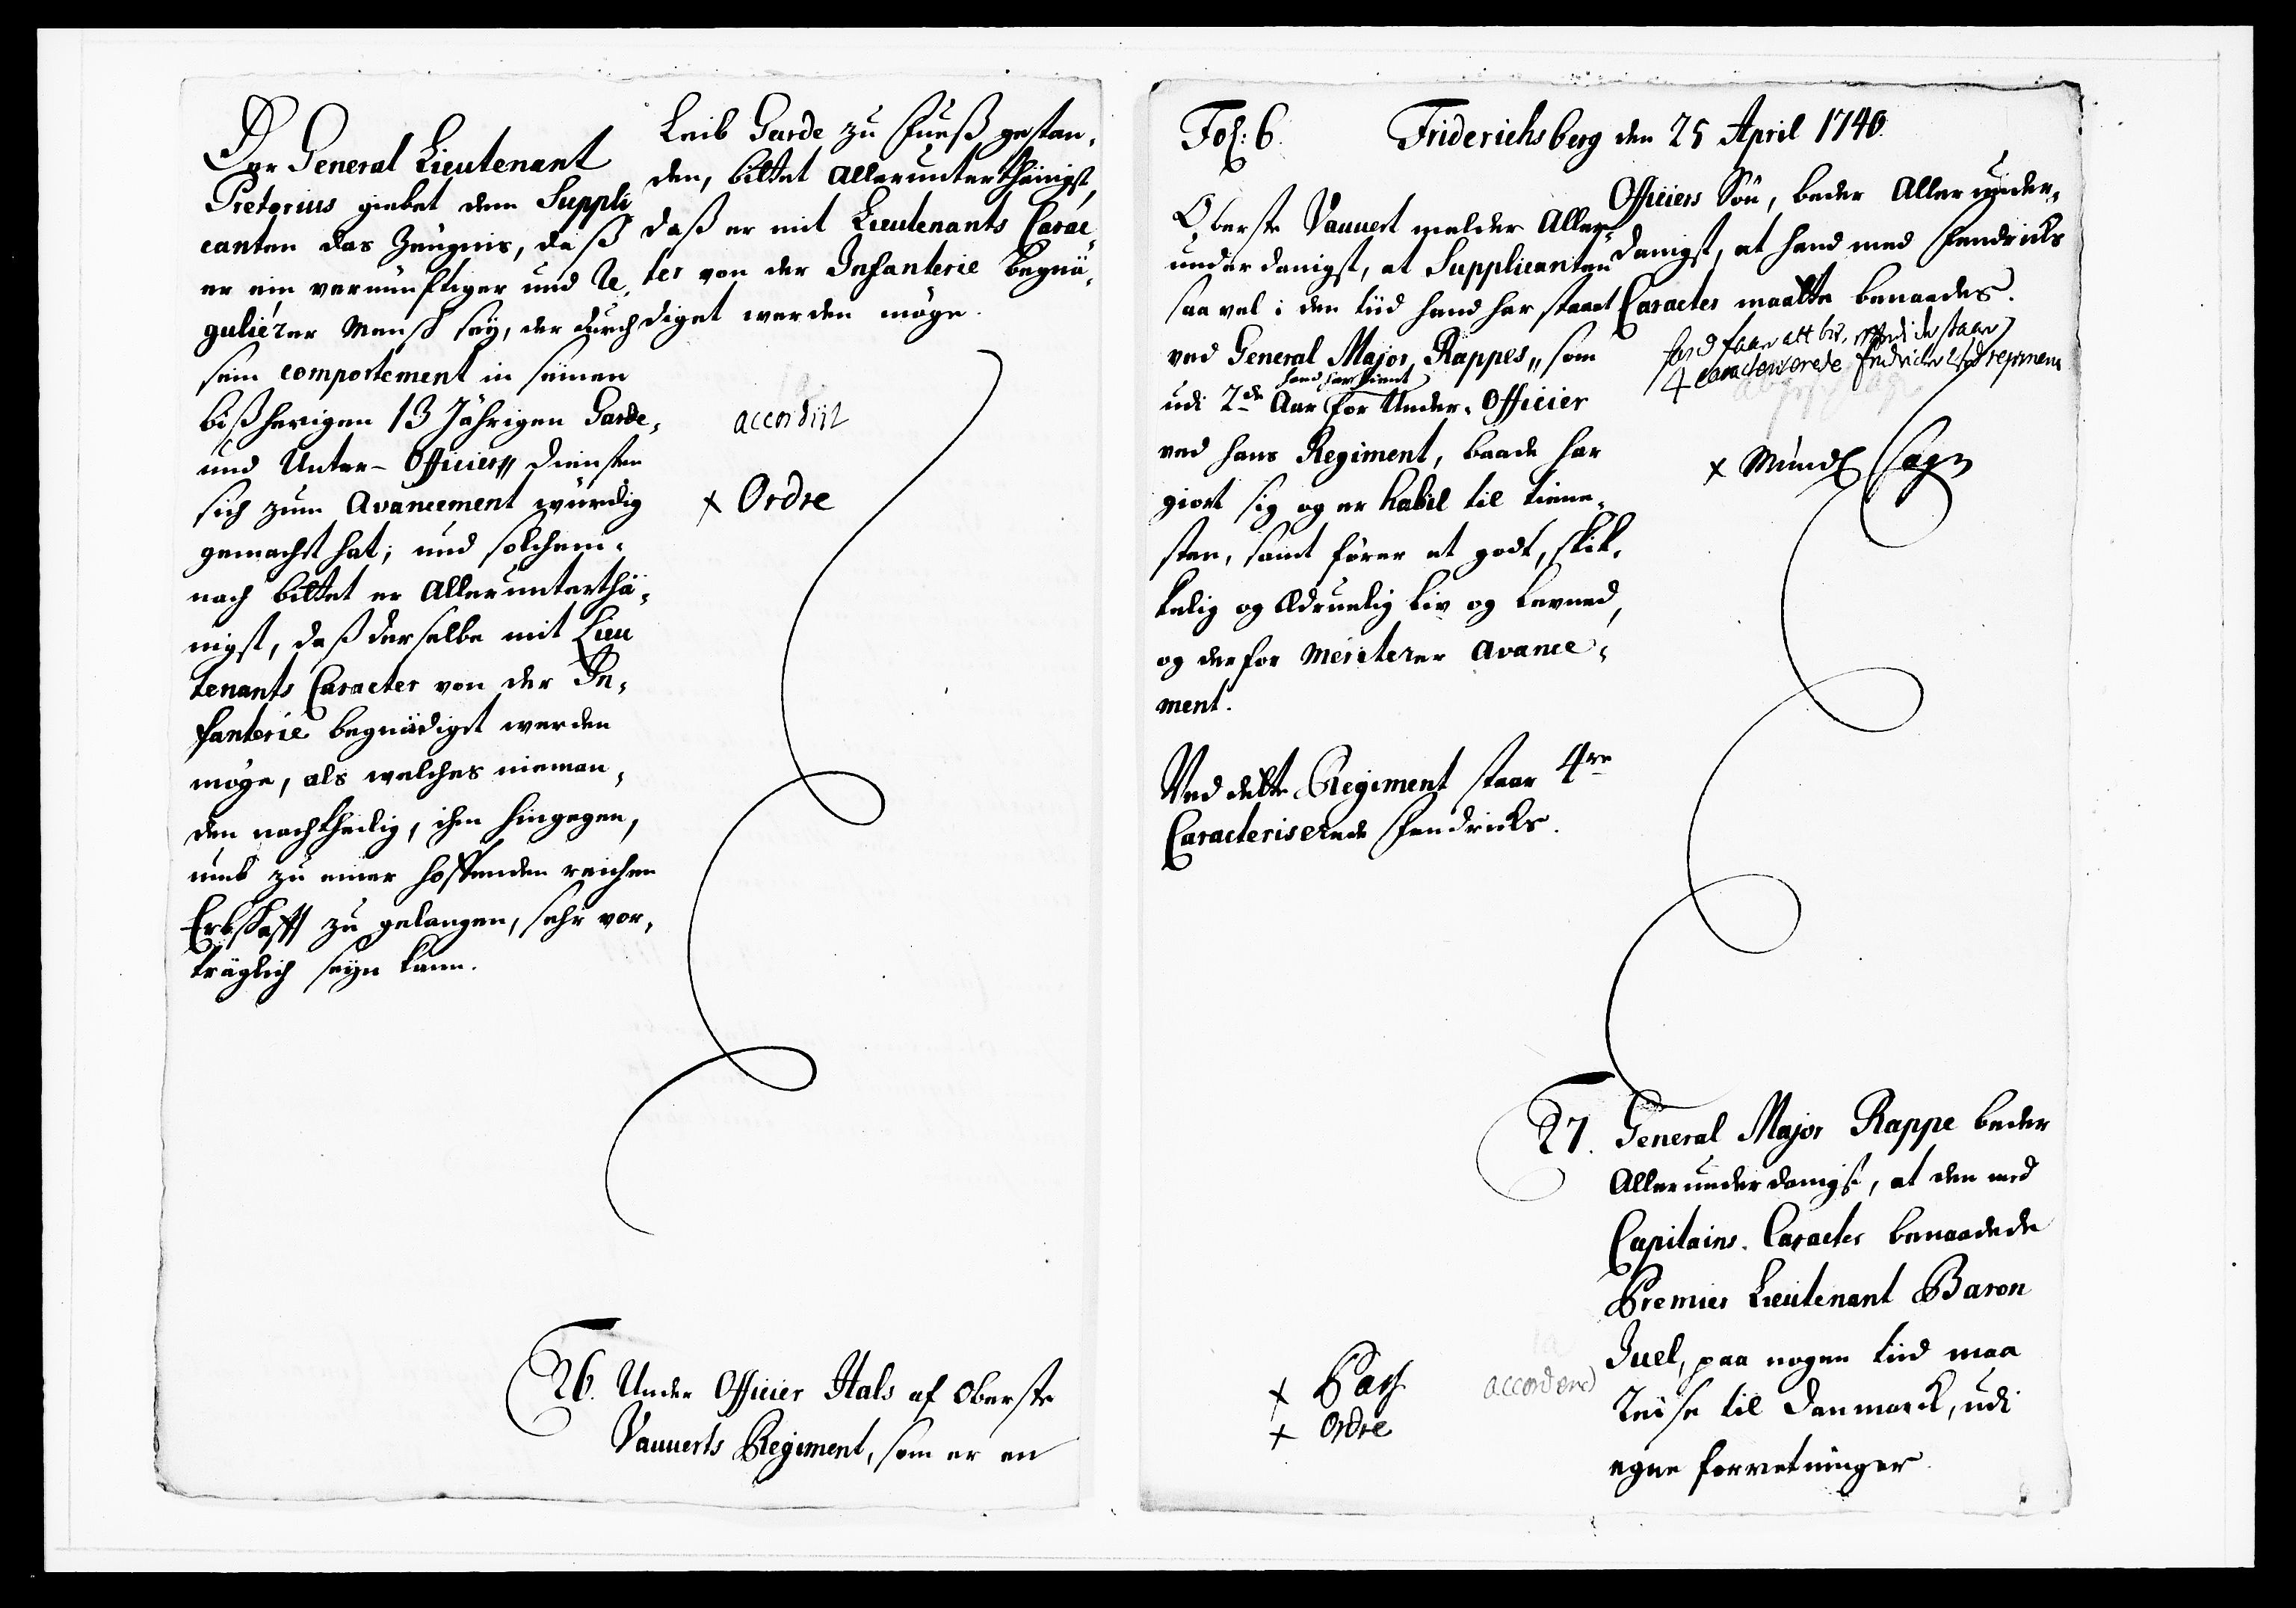 Der General Lieutenant
Pretorius giebet dem Suppli
canten das Zeugnis, daß
er ein vernünftiger und Re„
gulierer Mensch seÿ, der durch
sein comportement in seinen
bißherigen 13 Jährigen Garde„
und Unter-Officiers Diensten
sich zum Avancement würdig
gemacht hat; und solchem„
nach bittet er Allerunterthä„
nigst, daß derselbe mit Lieu
tenants Caracter von der In„
fanterie begnädiget werden
möge, als welches nieman„
den nachtheilig, ihm hingegen,
umb zu einer hoffenden reichen
Erbschafft zu gelangen, sehr vor„
träglich seÿn kann.
Leib Garde zu Fueß gestan„
den, bittet Allerunterthänigst,
daß er mit Lieutenants Carac„
ter von der Infanterie begnä„
diget werden möge.
accordiit
x Ordre
26. Under Officier Hals af Oberste
Vauuerts Regiment, som er en
Fol: 6.
Friderichsberg den 25 April 1740.
Oberste Vauuert melder Aller„
underdanigst, at Supplicanten
saa vel i den tiid hand har staaet
ved General Major Rappes, som
hand har tient
udi 2de Aar for Under-Officier
ved hans Regiment, baade har
giort sig og er habil til tiene„
sten, samt förer et godt, skik„
kelig og Ædruelig Liv og Levned,
og derfor meriterer avance„
ment.
Ved dette Regiment staar 4re
Caracteriserede Fendricks.
Officiers Sön, beder Allerunder„
danigst, at hand med Fendricks
Caracter maatte benaades.
4 caracteriserede Fendricker ved regiment
x Mündl: Sagn
27. General Major Rappe beder
Allerunderdanigst, at den med
Capitains Caracter benaadede
Premier Lieutenant Baron
Juel, paa nogen tiid maa
Reise til Danmarck, udi
egne forretninger.
accorderet
x Pass
x Ordre